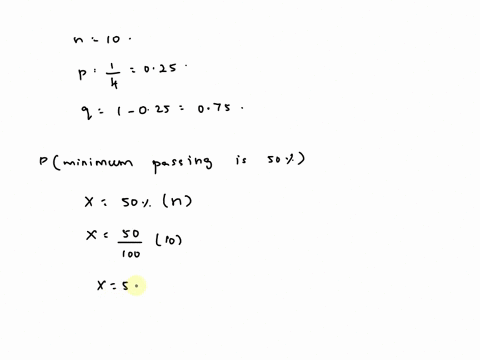 n = 10 .
p = 1/4 = 0.25 .
q = 1 - 0.25 = 0.75 .
P(minimum passing is 50%)
X = 50% (n)
X = 50/100 (10)
X = 5 .